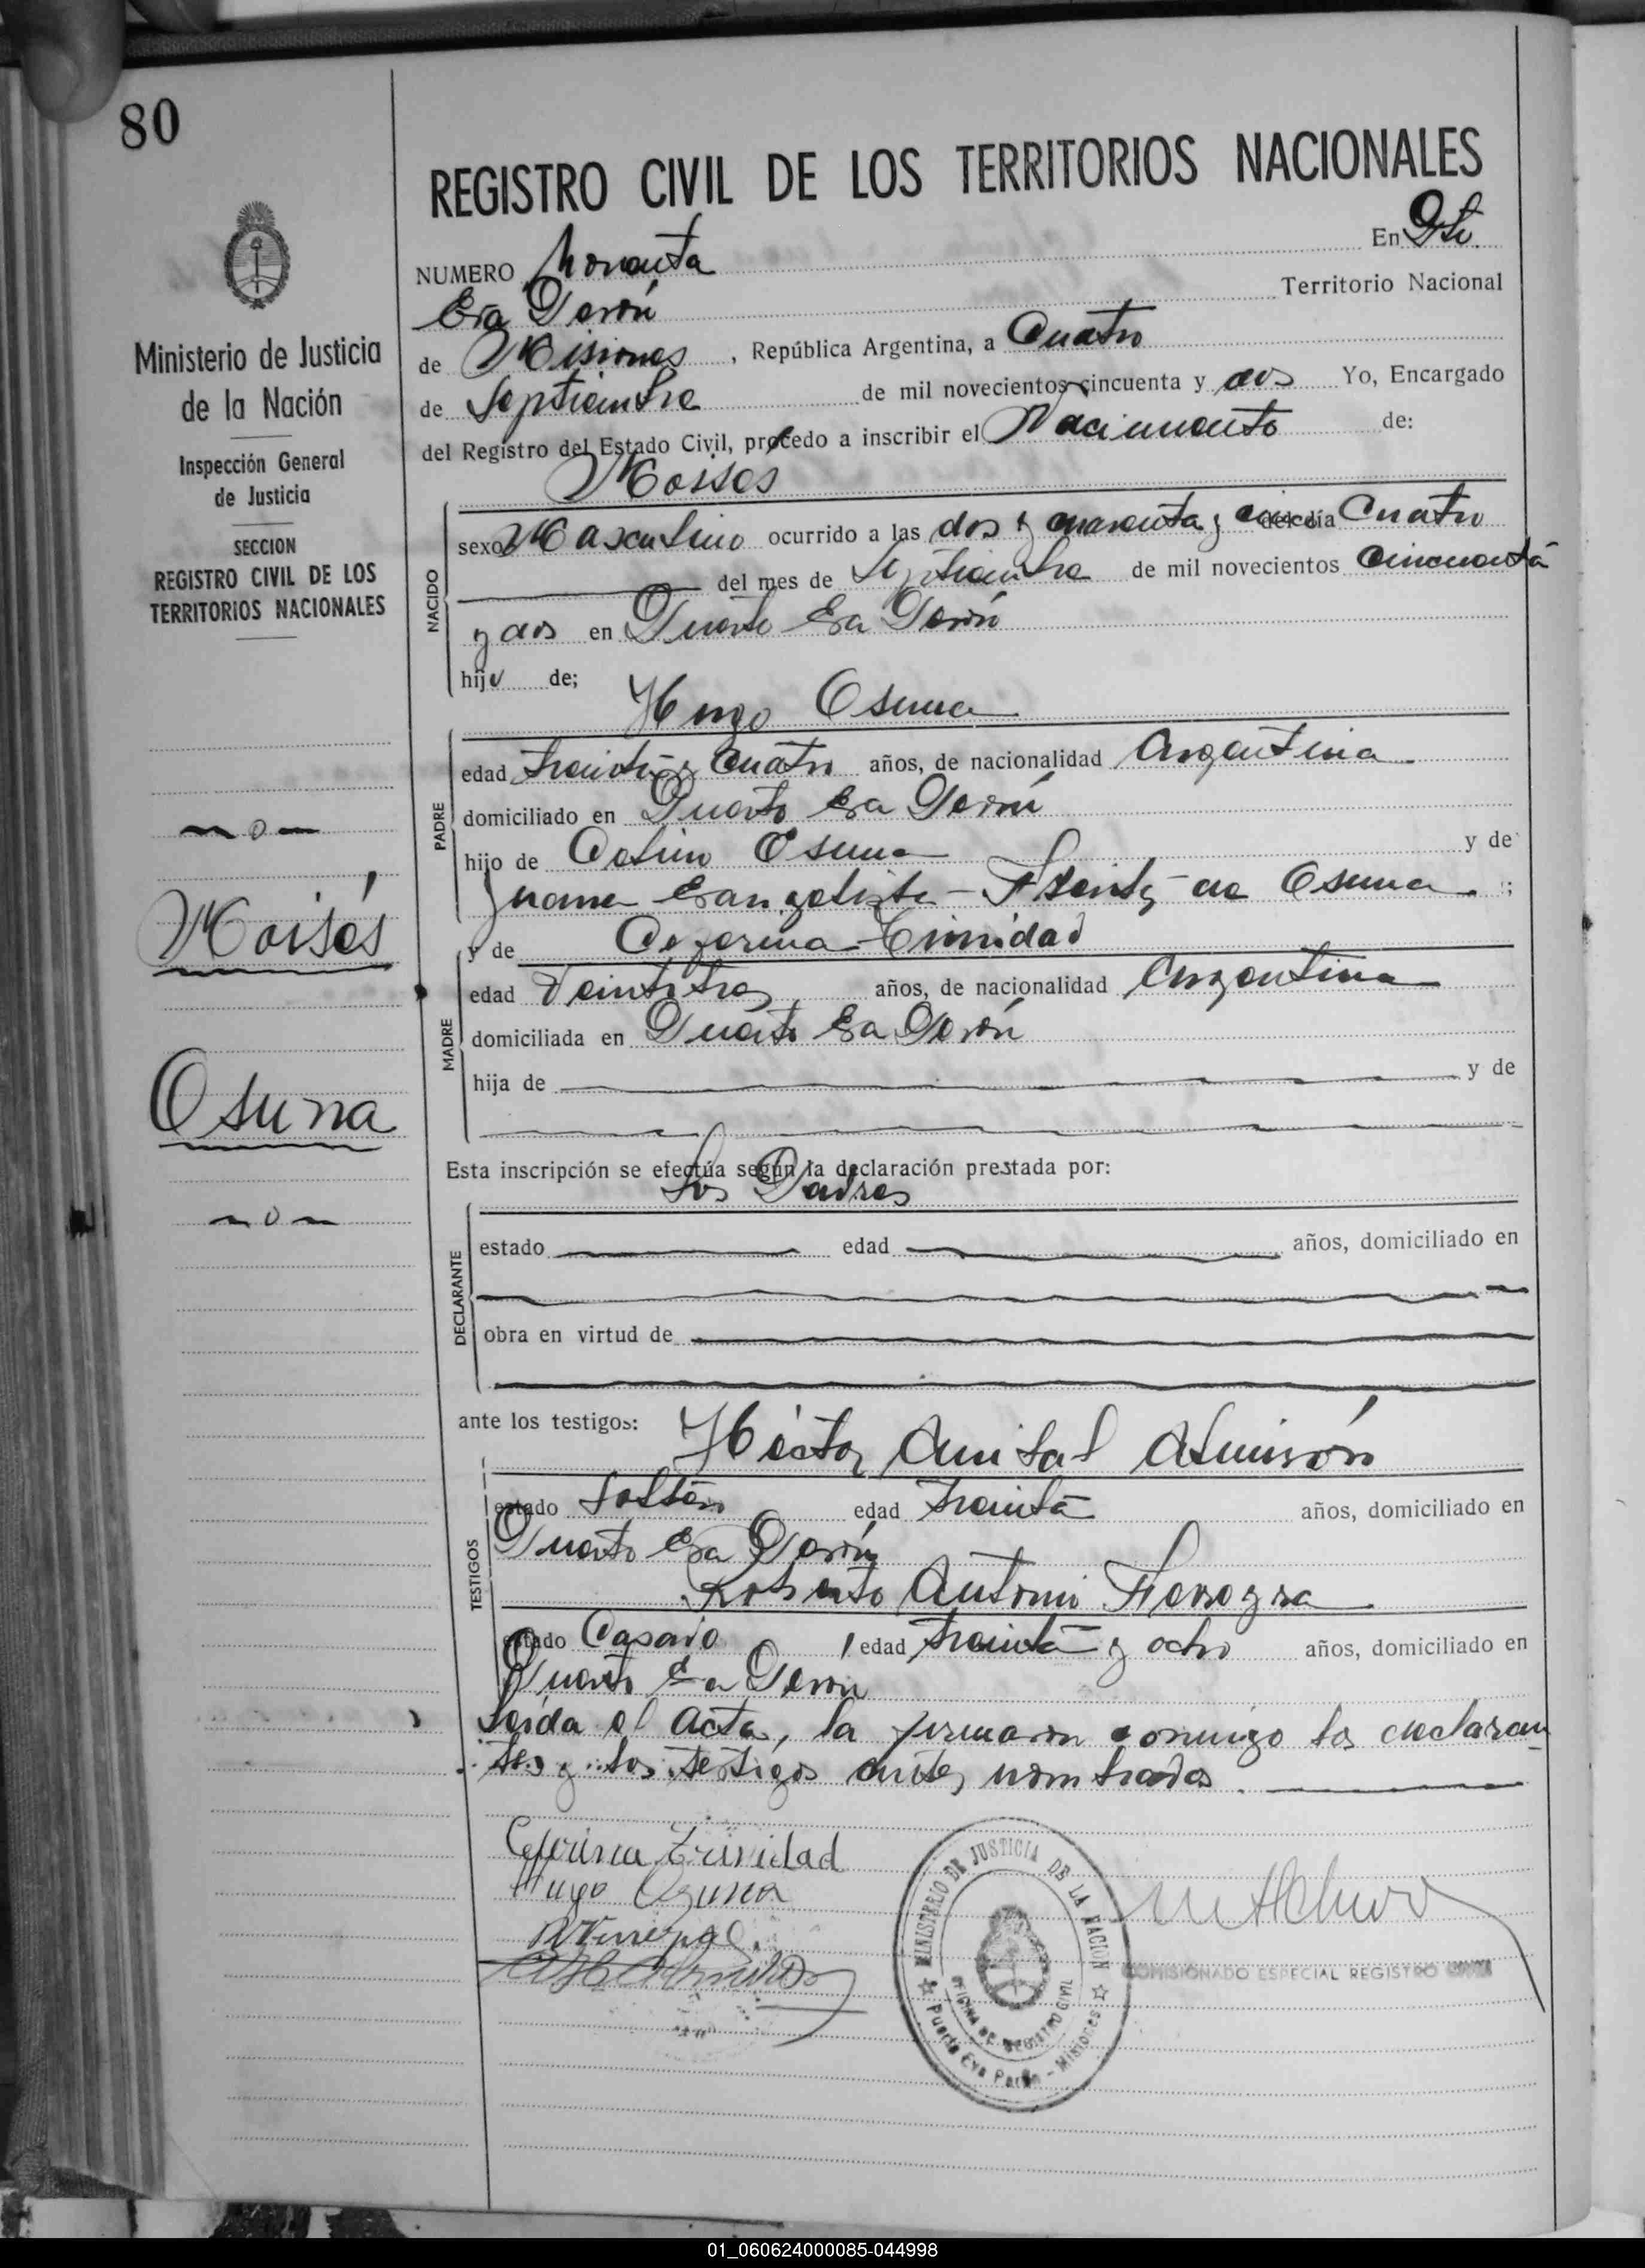 80
REGISTRO CIVIL DE LOS TERRITORIOS NACIONALES
NUMERO Noventa En Pto.
Eva Perón Territorio Nacional
de Misiones, República Argentina, a Cuatro
de Septiembre de mil novecientos cincuenta y dos Yo, Encargado
del Registro del Estado Civil, procedo a inscribir el Nacimiento de:
Moisés
sexo Masculino ocurrido a las dos y cuarenta y cinco del día Cuatro
del mes de Septiembre de mil novecientos Cincuenta
y dos en Puerto Eva Perón
hijo de;
NACIDO
Hugo Osuna
edad treinta y Cuatro años, de nacionalidad Argentina
domiciliado en Puerto Eva Perón
hijo de Osuna y de
Juana Evangelista de Osuna ;
PADRE
y de Ceferina Trinidad
edad Veintitres años, de nacionalidad Argentina
domiciliada en Puerto Eva Perón
hija de y de
MADRE
Esta inscripción se efectúa según la declaración prestada por:
Los Padres
estado edad años, domiciliado en
obra en virtud de
DECLARANTE
ante los testigos:
Héctor Anibal Almirón
estado Soltero edad treinta años, domiciliado en
Puerto Eva Perón
Roberto Antonio Ferreyra
estado Casado edad treinta y ocho años, domiciliado en
Puerto Eva Perón
TESTIGOS
Leida el acta, la firmaron conmigo los declaran
tes y los testigos antes nombrados.
Ceferina Trinidad
Hugo Ozuna
MINISTERIO DE JUSTICIA DE LA NACION
OFICINA DE REGISTRO CIVIL
Puerto Eva Perón - Misiones
COMISIONADO ESPECIAL REGISTRO CIVIL
Ministerio de Justicia
de la Nación
Inspección General
de Justicia
SECCION
REGISTRO CIVIL DE LOS
TERRITORIOS NACIONALES
Moisés
Osuna
01_060624000085-044998